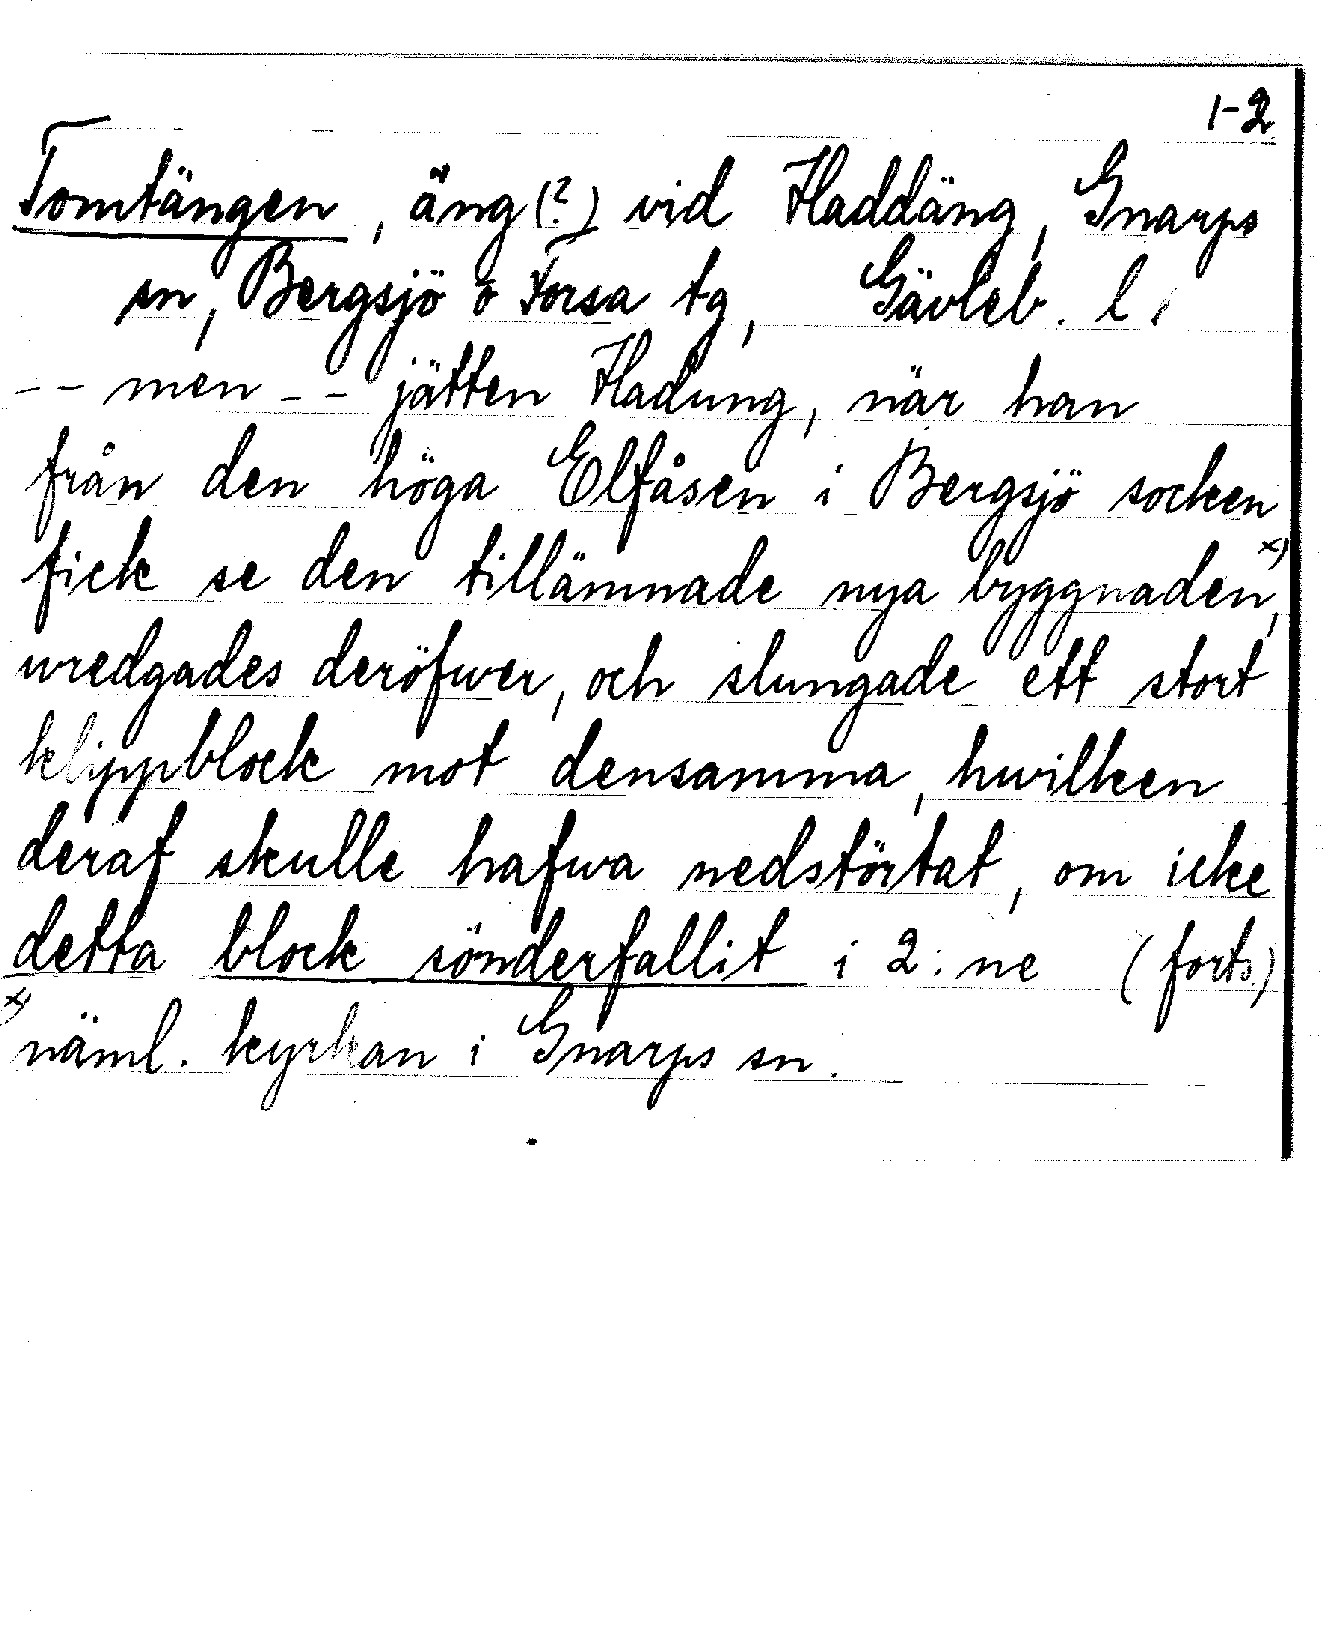 1-2
Tomtängen, äng(?) vid Haddäng, Gnarps
sn, Bergsjö o Forsa tg, Gävleb. l.
-- men -- jätten Hadung, när han
från den höga Elfåsen i Bergsjö socken
fick se den tillämnade nya byggnaden x),
wredgades deröfwer, och slungade ett stort
klippblock mot densamma, hwilken
deraf skulle hafwa nedstörtat, om icke
detta block sönderfallit i 2:ne (forts.)
x) näml. kyrkan i Gnarps sn.